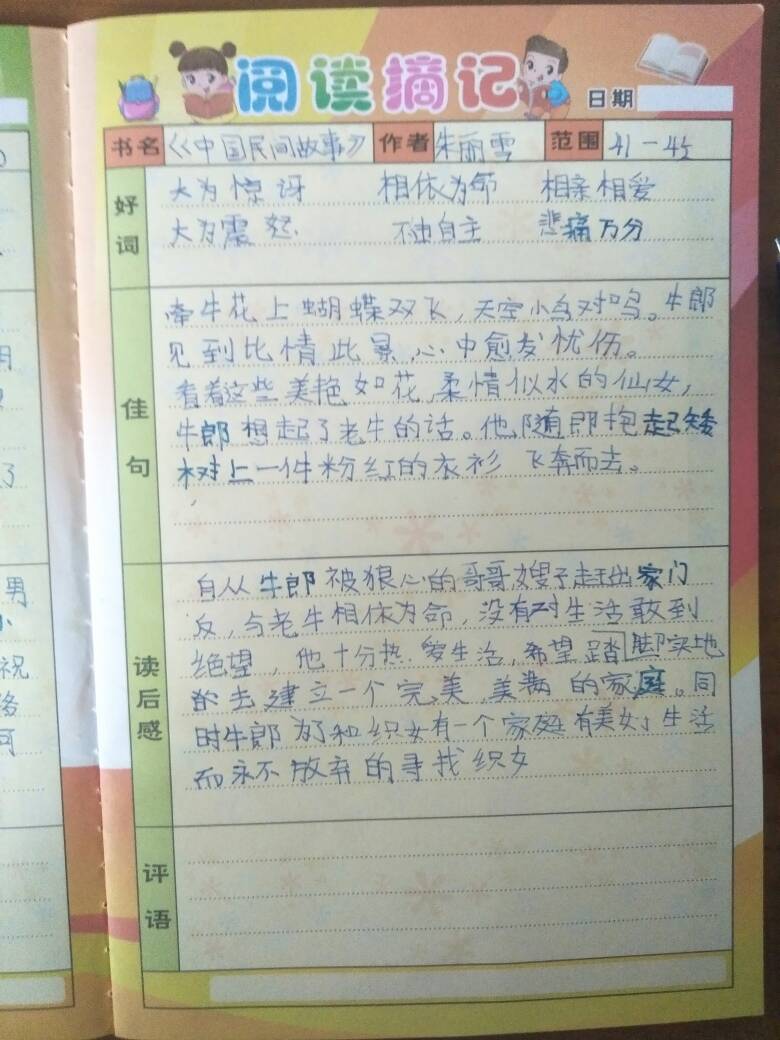 阅读摘记
日期
书名 《中国民间故事》 作者 朱丽雪 范围 41-45
好词
大为惊讶 相依为命 相亲相爱
大为震怒 不由自主 悲痛万分
佳句
牵牛花上蝴蝶双飞，天空小鸟对鸣。牛郎
见到比情此景心中愈发忧伤。
看着这些美艳如花，柔情似水的仙女，
牛郎想起了老牛的话。他随即抱起矮
树上一件粉红的衣衫 飞奔而去。
读后感
自从牛郎被狠心的哥哥嫂子赶出家门
后，与老牛相依为命，没有对生活感到
绝望，他十分热爱生活，希望踏脚实地
的去建立一个完美，美满的家庭。同
时牛郎为了和织女有一个家庭有美好生活
而永不放弃的寻找织女
评语
男
祝